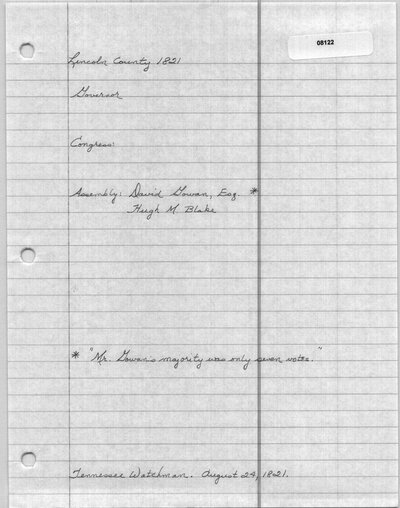 08122
Lincoln County 1821
Governor
Congress:
Assembly: David Gowan, Esq. *
Hugh M. Blake
* "Mr. Gowan's majority was only seven votes."
Tennessee Watchman. August 24, 1821.